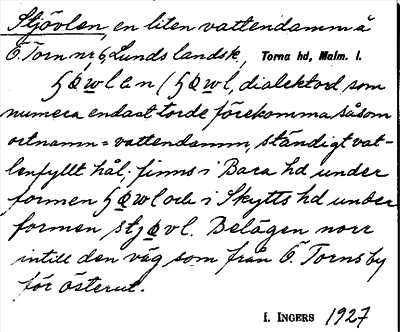 Stjövlen, en liten vattendamm å
Ö. Torn nr 6, Lunds landsk., Torna hd, Malm. l.
ʂø̱wlen / ʂø̱wl, dialektord som
numera endast torde förekomma såsom
ortnamn = vattendamm, ständigt vat-
tenfyllt hål; finns i Bara hd under
formen ʂø̱wl och i Skytts hd under
formen stjø̱vl. Belägen norr
intill den väg som från Ö. Torns by
för österut.
I. INGERS 1927